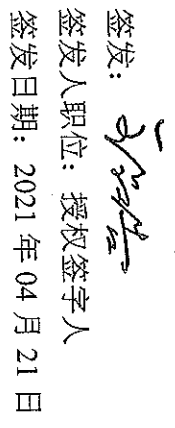 签发:
签发人职位: 授权签字人
签发日期: 2021 年 04 月 21 日